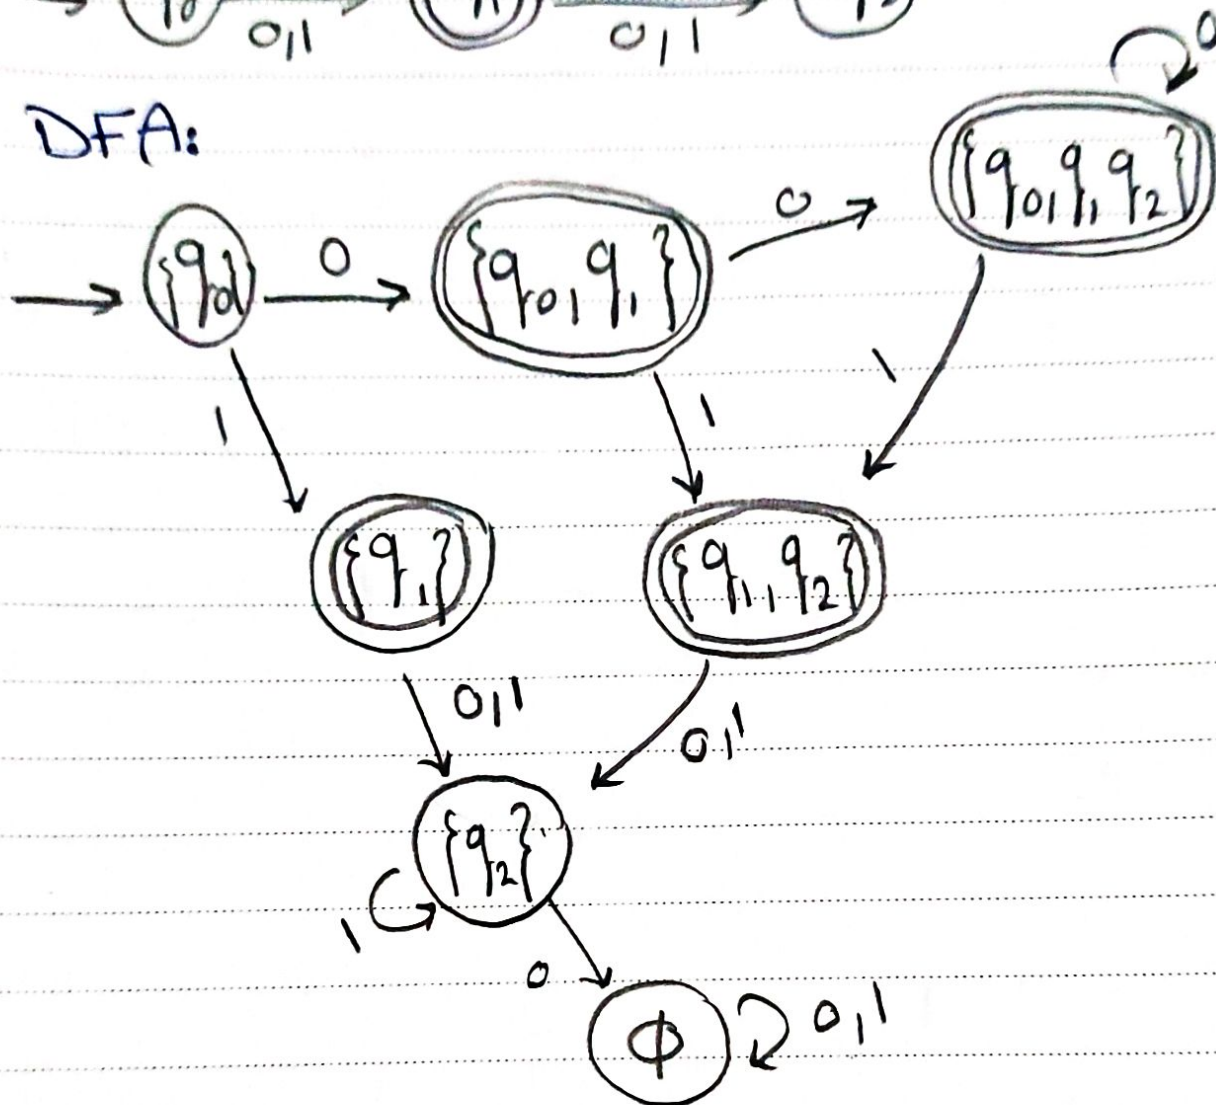 0,1 0,1
DFA:
0
{q0} 0 {q0,q1} 0 {q0,q1q2}
1 1 1
{q1} {q1,q2}
0,1 0,1
{q2}
1
0
ϕ 0,1